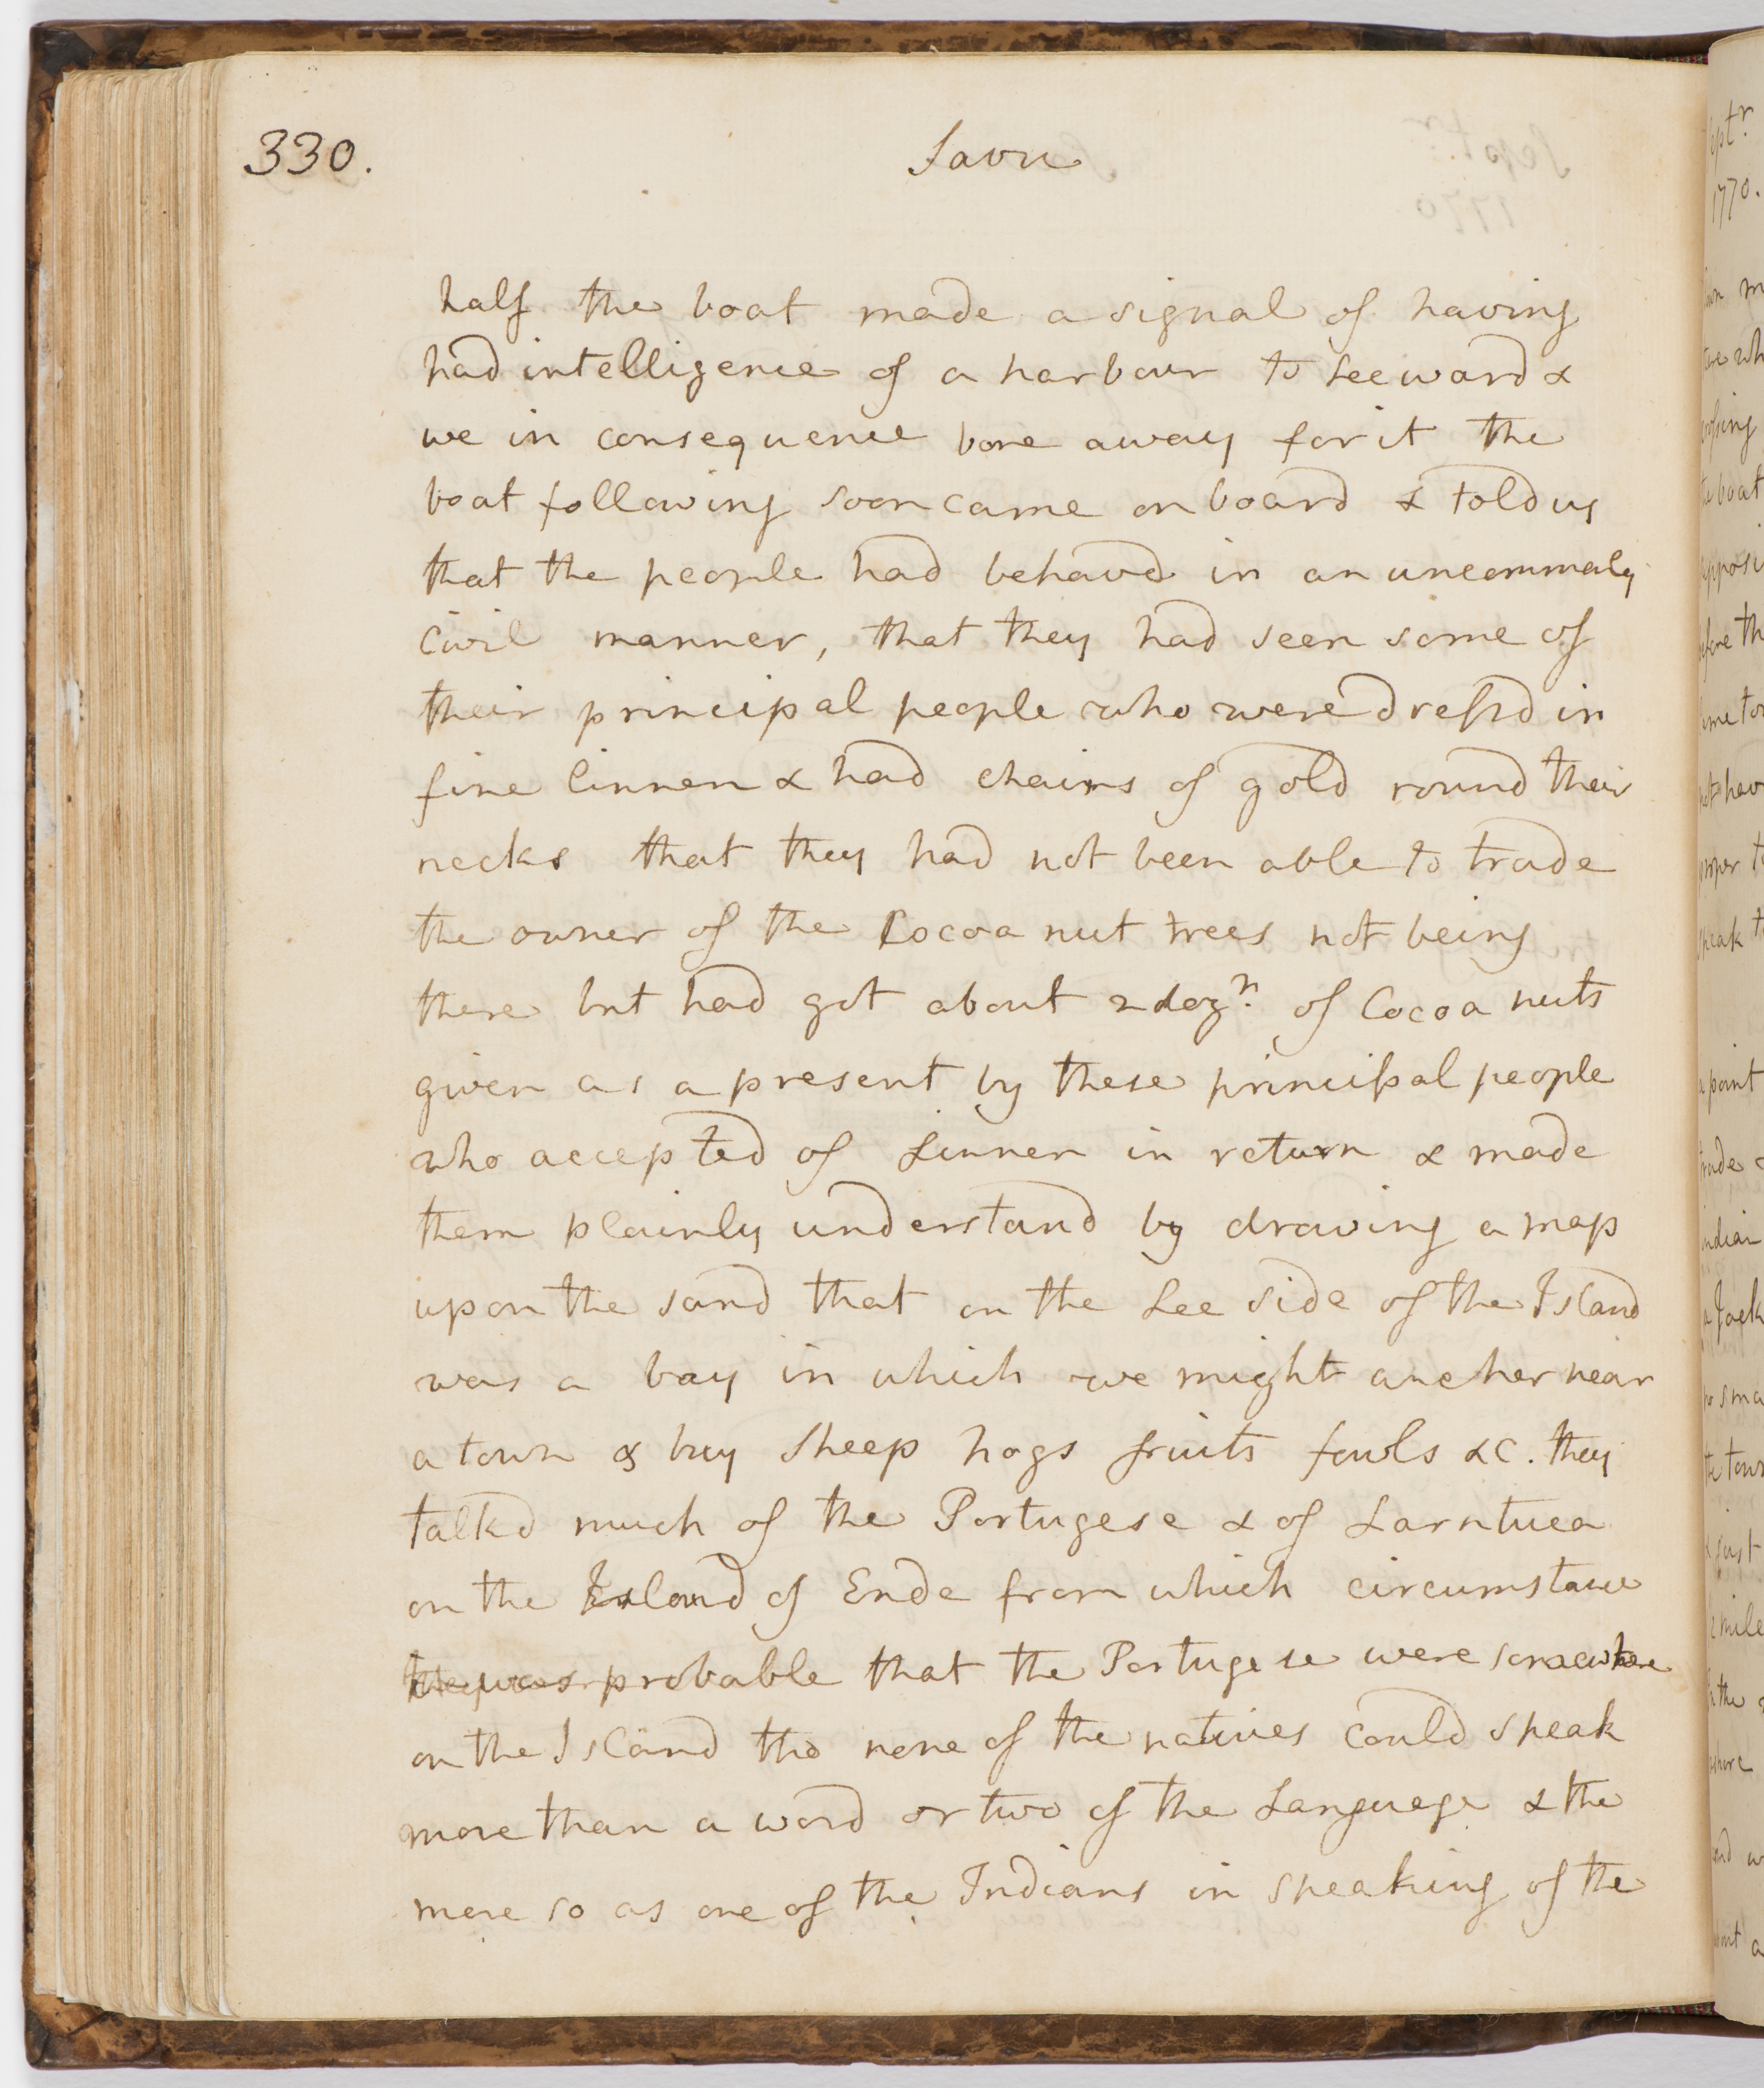 330.
Savu
half the boat made a signal of having
had intelligence of a harbour to Leeward &
we in consequence bore away for it the
boat following soon came on board & told us
that the people had behavd in an uncommonly
civil manner, that they had seen some of
their principal people who were dressd in
fine linnen & had chains of gold round their
necks that they had not been able to trade
the owner of the Cocoa nut trees not being
there but had got about 2 dozn. of Cocoa nuts
given as a present by these principal people
who accepted of Linnen in return & made
them plainly understand by drawing a map
upon the sand that on the Lee side of the Island
was a bay in which we might ancher near
a town & buy Sheep hogs fruits fowls &c. they
talkd much of the Portugese & of Larntuca
on the Island of Ende from which circumstance
probable that the Portugese were somewhere
on the Island tho none of the natives could speak
more than a word or two of the Language & the
more so as one of the Indians in speaking of the
Septr.
1770.